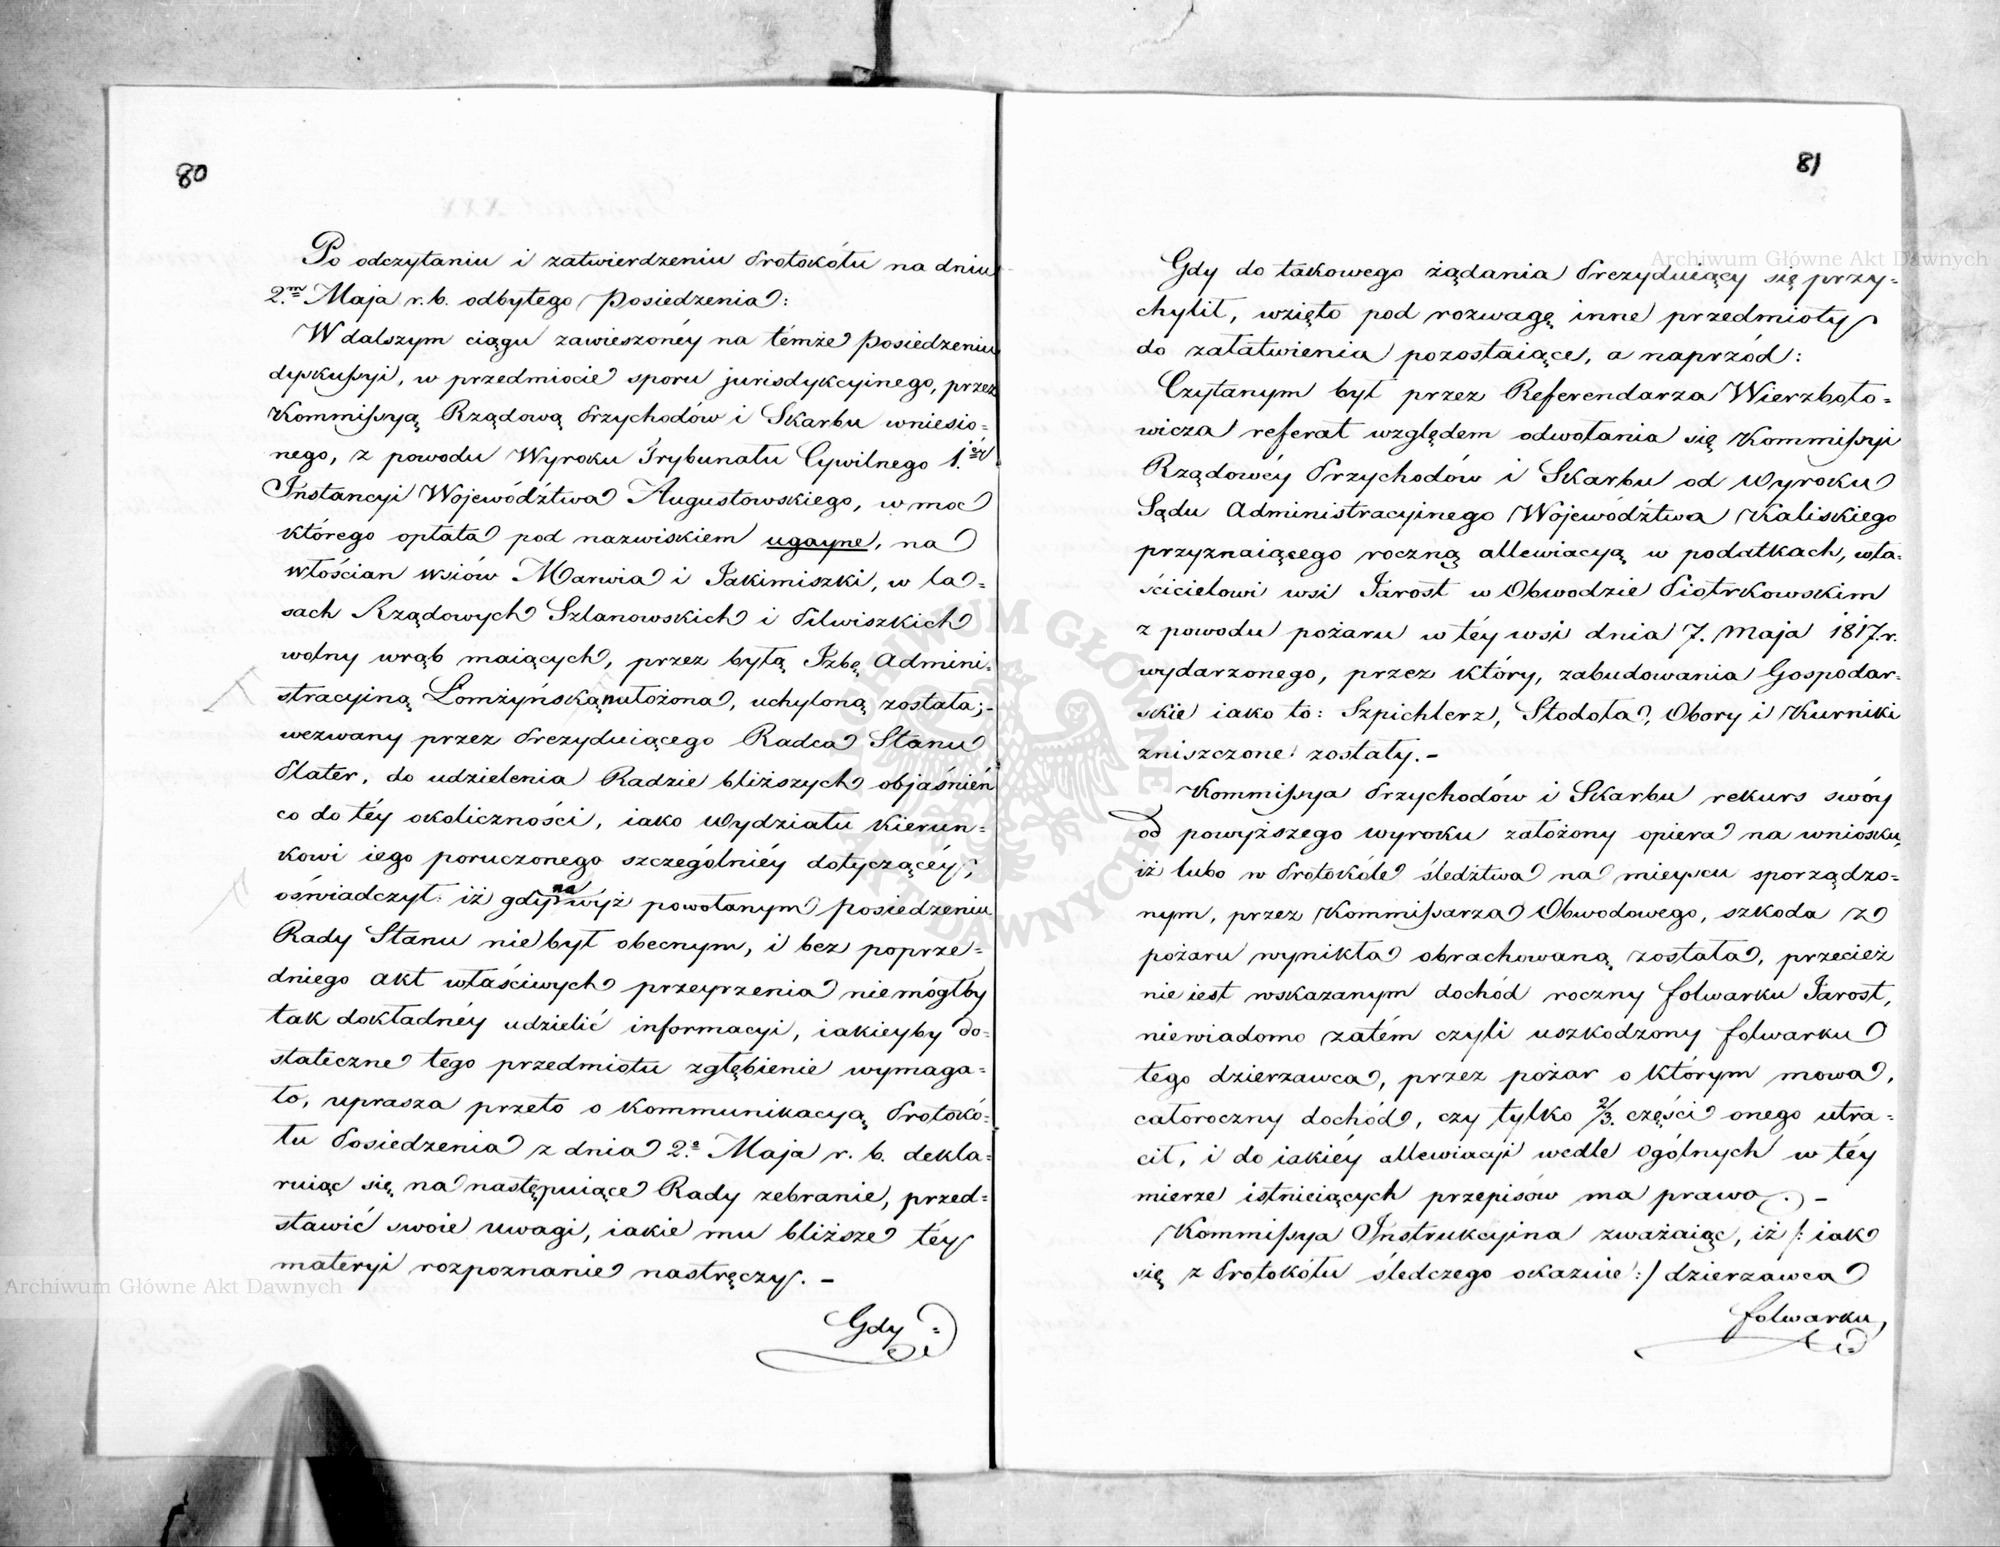 80
Po odczytaniu i zatwierdzeniu Protokółu na dniu
2.m Maja r. b. odbytego Posiedzenia:
W dalszym ciągu zawieszonéy na témże Posiedzeniu
dyskussyi, w przedmiocie sporu jurisdykcyinego, przez
Kommissyą Rządową Przychodów i Skarbu wniesio=
nego, z powodu Wyroku Trybunału Cywilnego 1.éy
Instancyi Województwa Augustowskiego, w moc
którego opłata pod nazwiskiem ugayne, na
włościan wsiów Marwia i Jakimiszki, w la=
sach Rządowych Szlanowskich i Pilwiszkich
wolny wrąb maiących, przez byłą Izbę Admini=
stracyiną Łomżyńską nałożona, uchyloną została;-
wezwany przez Prezyduiącego Radca Stanu
Plater, do udzielenia Radzie bliższych objaśnień
co do téy okoliczności, iako Wydziału kierun=
kowi iego poruczonego szczególniéy dotyczącéy,
oświadczył: iż gdy na wyż powołanym posiedzeniu
Rady Stanu nie był obecnym, i bez poprze=
dniego akt właściwych przeyrzenia niemógłby
tak dokładnéy udzielić informacyi, iakieyby do=
stateczne tego przedmiotu zgłębienie wymaga=
ło, uprasza przeto o kommunikacyą Protokó=
łu Posiedzenia z dnia 2.o Maja r. b. dekla=
ruiąc się na następuiące Rady zebranie, przed=
stawić swoie uwagi, iakie mu bliższe téy
materyi rozpoznanie nastręczy. -
Gdy =
81
Gdy do takowego żądania Prezyduiący się przy=
chylił, wzięto pod rozwagę inne przedmioty
do załatwienia pozostaiące, a naprzód:
Czytanym był przez Referendarza Wierzboło=
wicza referat względem odwołania się Kommissyi
Rządowéy Przychodów i Skarbu od Wyroku
Sądu Administracyinego Województwa Kaliskiego
przyznaiącego roczną allewiacyą w podatkach, wła=
ścicielowi wsi Jarost w Obwodzie Piotrkowskim
z powodu pożaru w téy wsi dnia 7. Maja 1817. r.
wydarzonego, przez który, zabudowania Gospodar=
skie iako to: Szpichlerz, Stodoła, Obory i Kurniki
zniszczone zostały. -
Kommissya Przychodów i Skarbu rekurs swóy
od powyższego wyroku założony opiera na wniosku,
iż lubo w Protokóle śledztwa na mieyscu sporządzo=
nym, przez Kommissarza Obwodowego, szkoda z
pożaru wynikła obrachowaną została, przecież
nie iest wskazanym dochód roczny folwarku Jarost,
niewiadomo zatém czyli uszkodzony folwarku
tego dzierzawca, przez pożar o którym mowa,
całoroczny dochód, czy tylko 2/3. części onego utra=
cił, i do iakiéy allewiacyi wedle ogólnych w téy
mierze istnieiących przepisów ma prawo. -
Kommissya Instrukcyina zważaiąc, iż /: iak
się z Protokółu śledczego okazuie :/ dzierzawca
folwarku,
Archiwum Główne Akt Dawnych
Archiwum Główne Akt Dawnych
ARCHIWUM GŁÓWNE AKT DAWNYCH